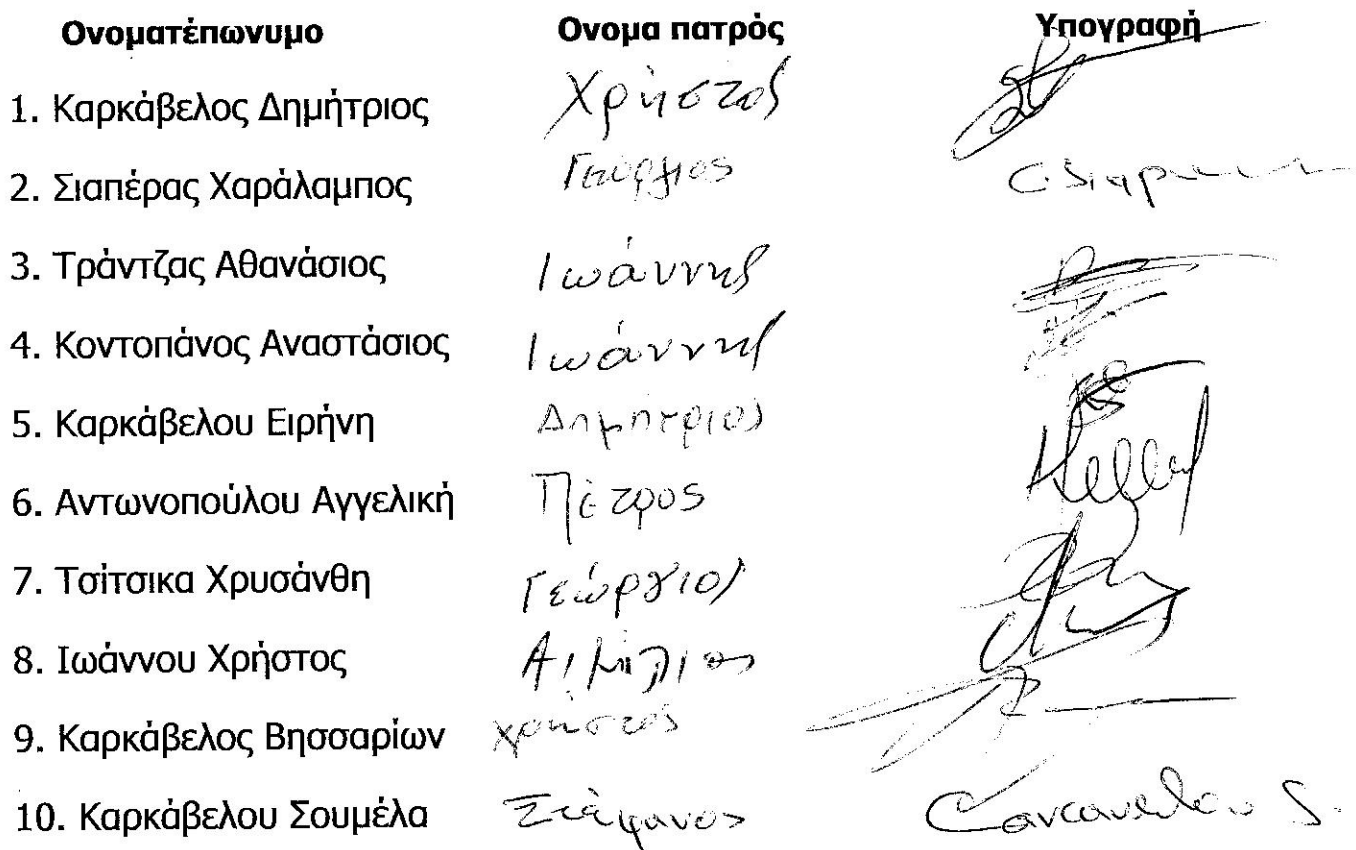 Ονοματέπωνυμο Ονομα πατρός Υπογραφή
1. Καρκάβελος Δημήτριος Χρήστος
2. Σιαπέρας Χαράλαμπος Γεώργιος
3. Τράντζας Αθανάσιος Ιωάννης
4. Κοντοπάνος Αναστάσιος Ιωάννης
5. Καρκάβελου Ειρήνη Δημήτριος
6. Αντωνοπούλου Αγγελική Πέτρος
7. Τσίτσικα Χρυσάνθη Γεώργιος
8. Ιωάννου Χρήστος Αιμίλιος
9. Καρκάβελος Βησσαρίων Χρήστος
10. Καρκάβελου Σουμέλα Στέφανος